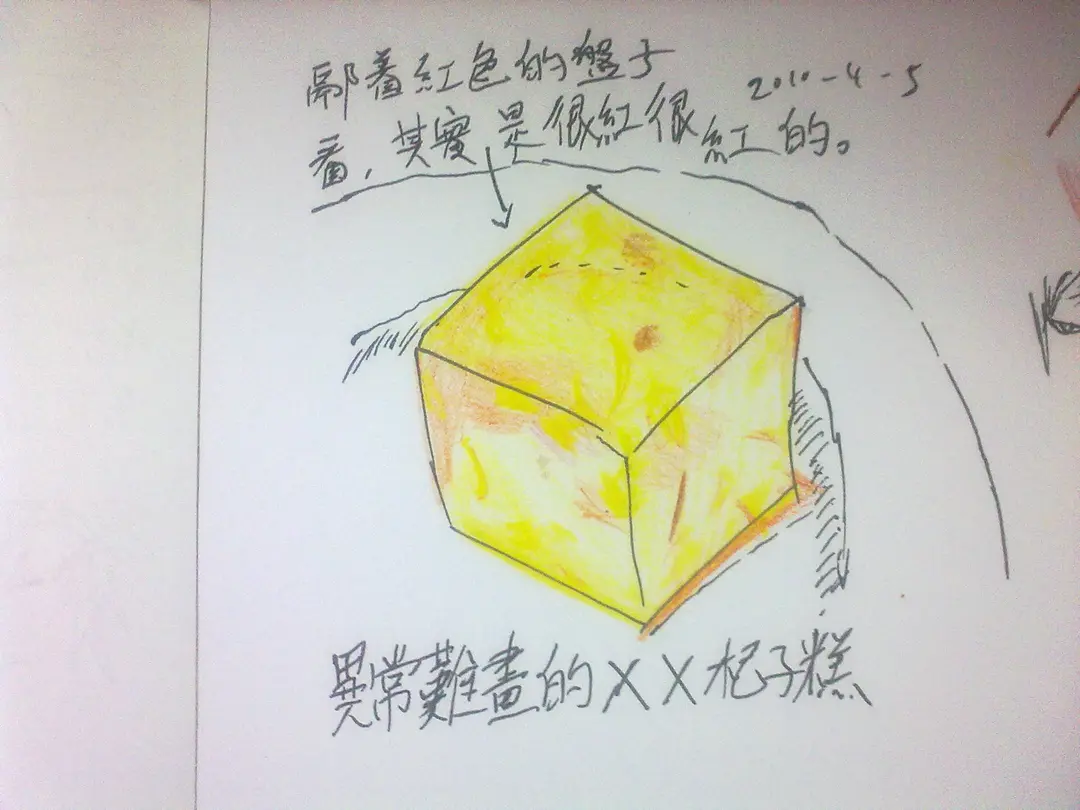 隔着紅色的盤子
2010-4-5
看，其實是很紅很紅的。
異常難畫的XX杞子糕